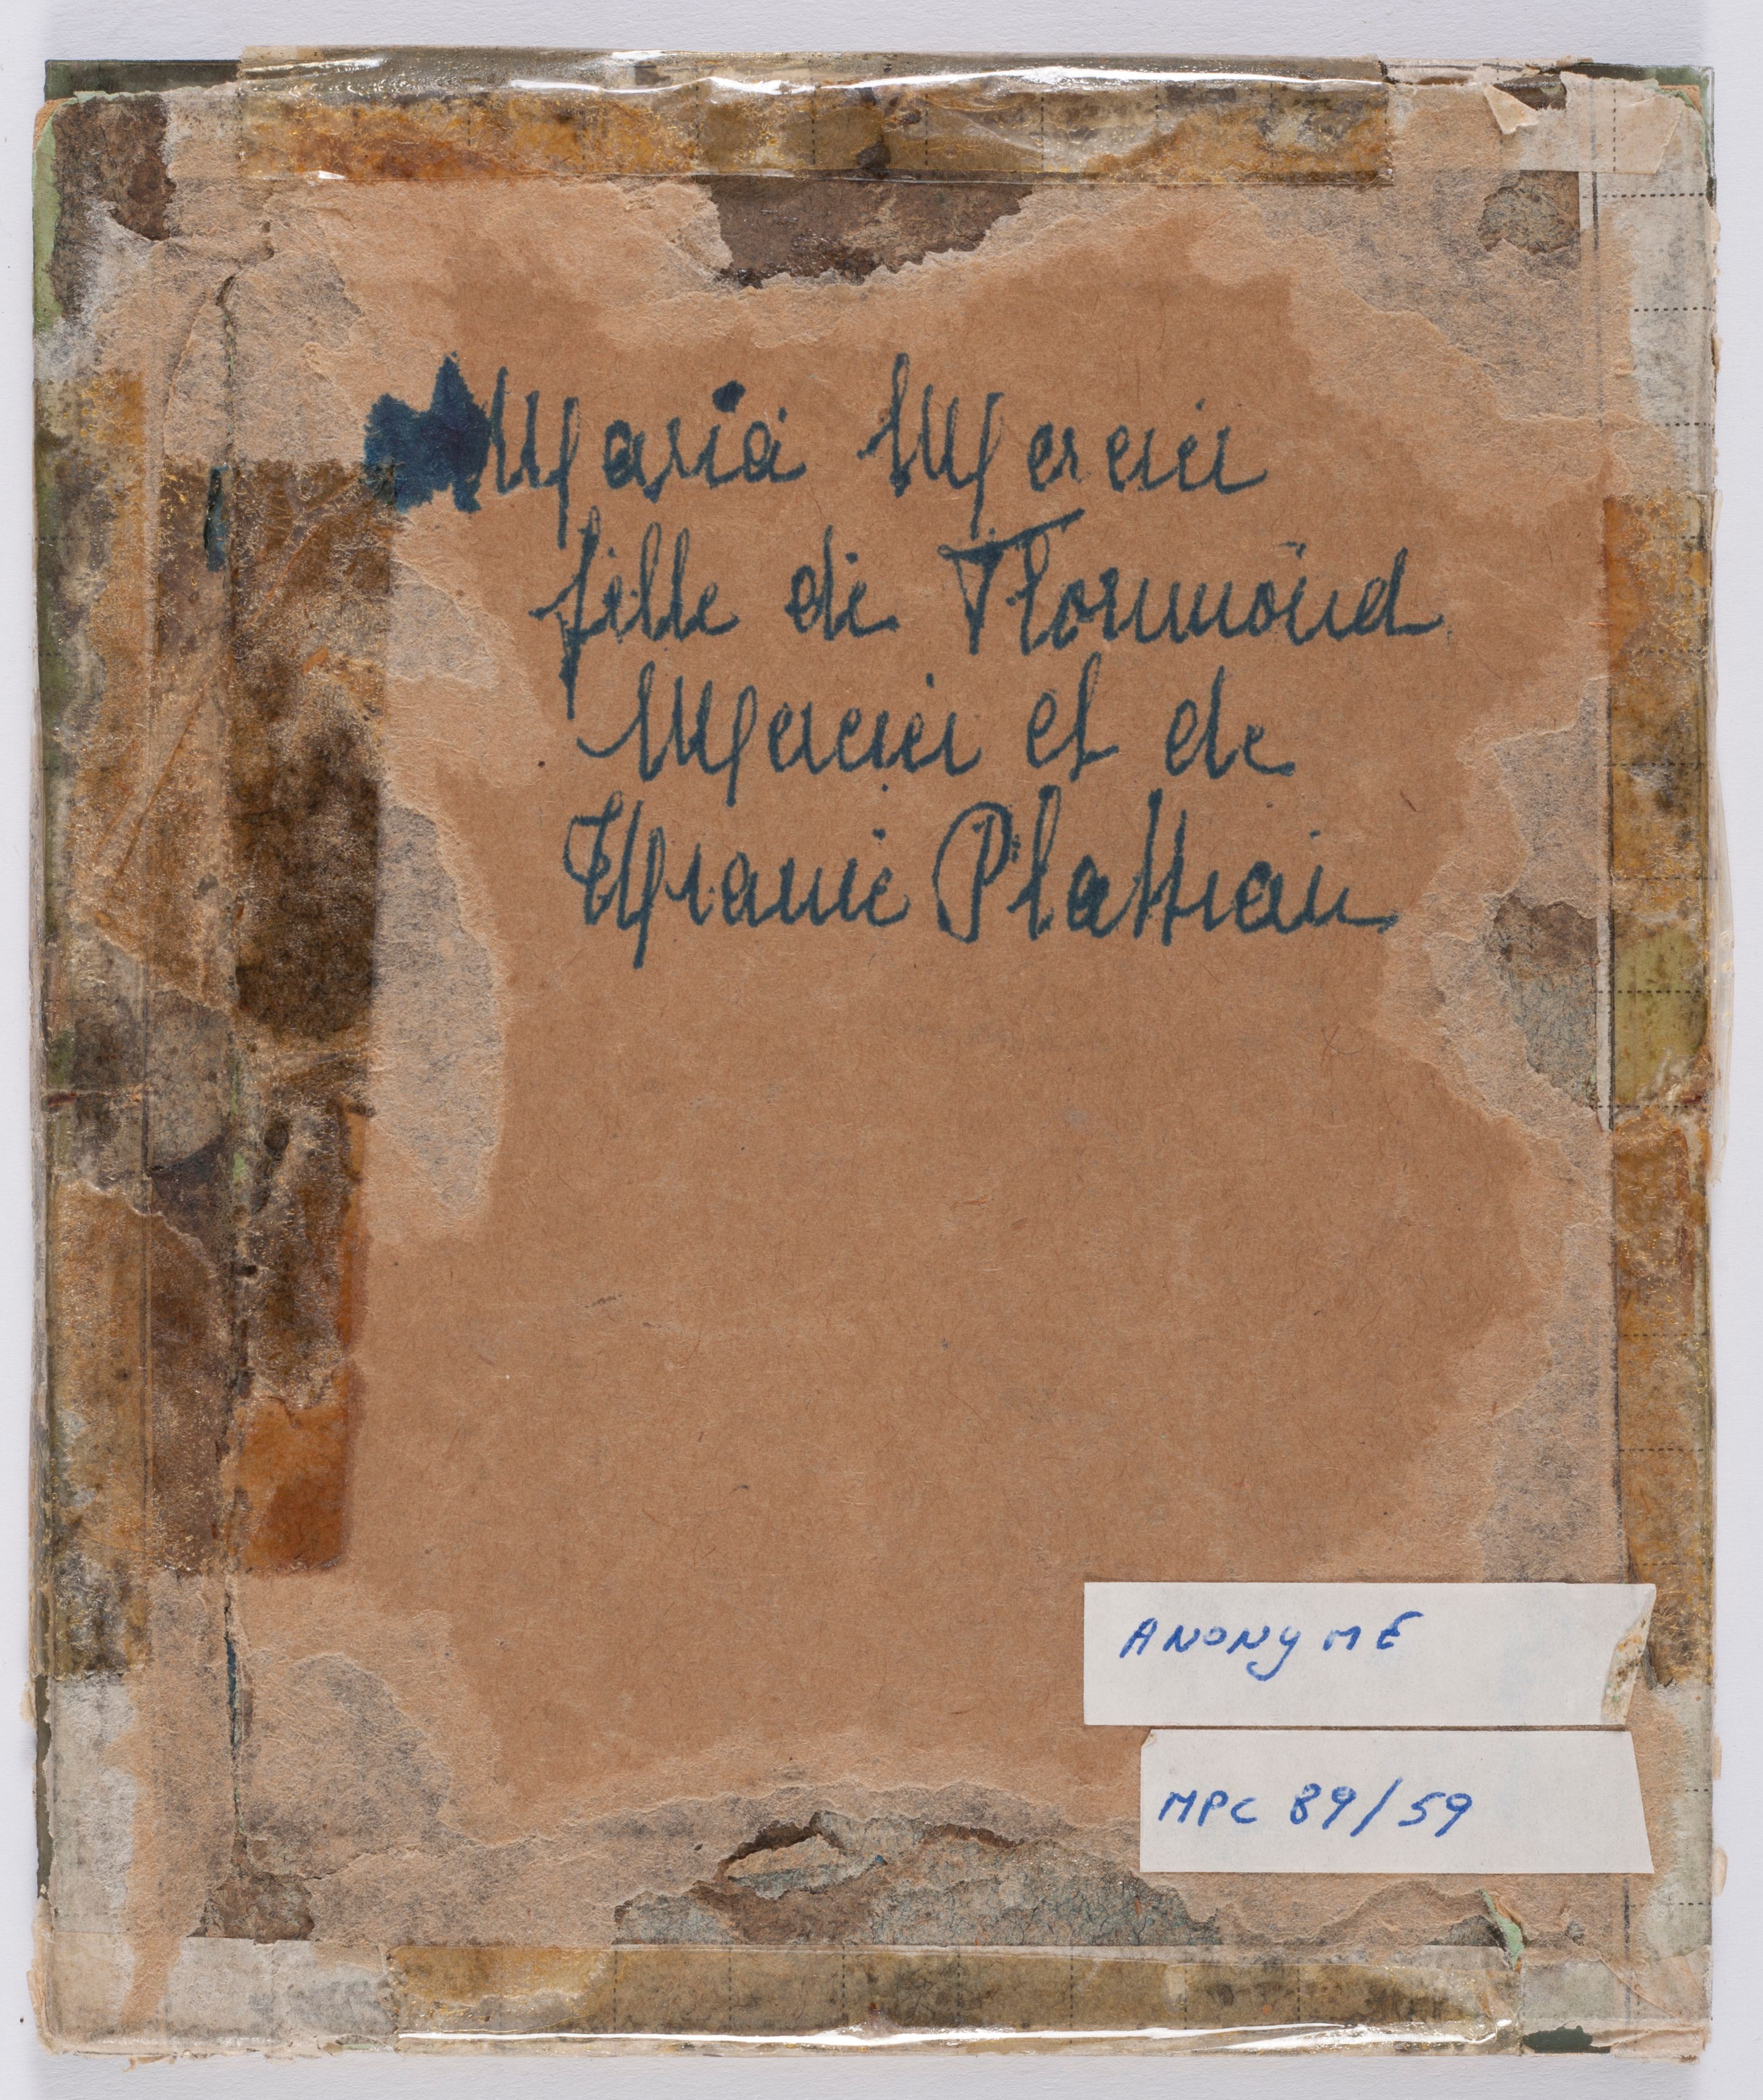 Maria Mercier
fille de Flormond
Mercier et de
Uranie Plattrain
ANONYME
MPC 89/59